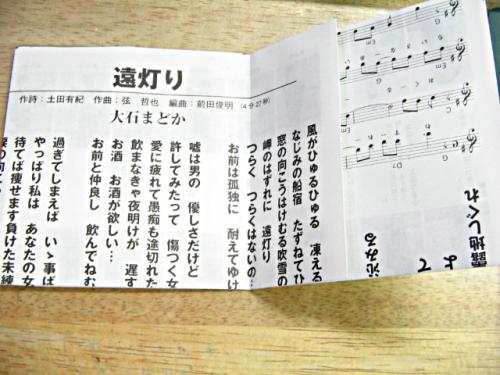 遠灯り
作詩：土田有紀 作曲：弦 哲也 編曲：前田俊明 (4分27秒)
大石まどか
風がひゅるひゅる 凍える
なじみの船宿 たずねてひ
窓の向こうはけむる吹雪の
岬のはずれに 遠灯り
つらく つらくはないの
お前は孤独に 耐えてゆけ
嘘は男の 優しさだけど
許してみたって 傷つく女
愛に疲れて愚痴も途切れた
飲まなきゃ夜明けが 遅す
お酒 お酒が欲しい…
お前と仲良し 飲んでねむ
過ぎてしまえば いゝ事ば
やっぱり私は あなたの女
待てば痩せます負けた未練
Em
Em
D7
露地しぐれ
よて
沁みる